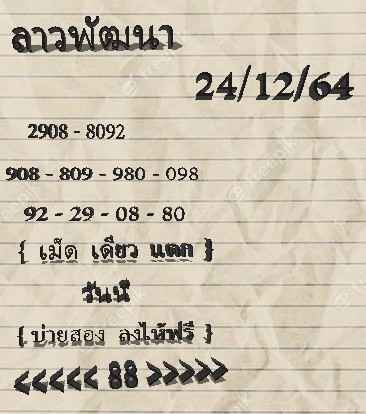 ลาวพัฒนา
24/12/64
2908 - 8092
908 - 809 - 980 - 098
92 - 29 - 08 - 80
{ เม็ด เดียว แตก }
วันนี้
{ บ่ายสอง ลงให้ฟรี }
<<<<< 88 >>>>>